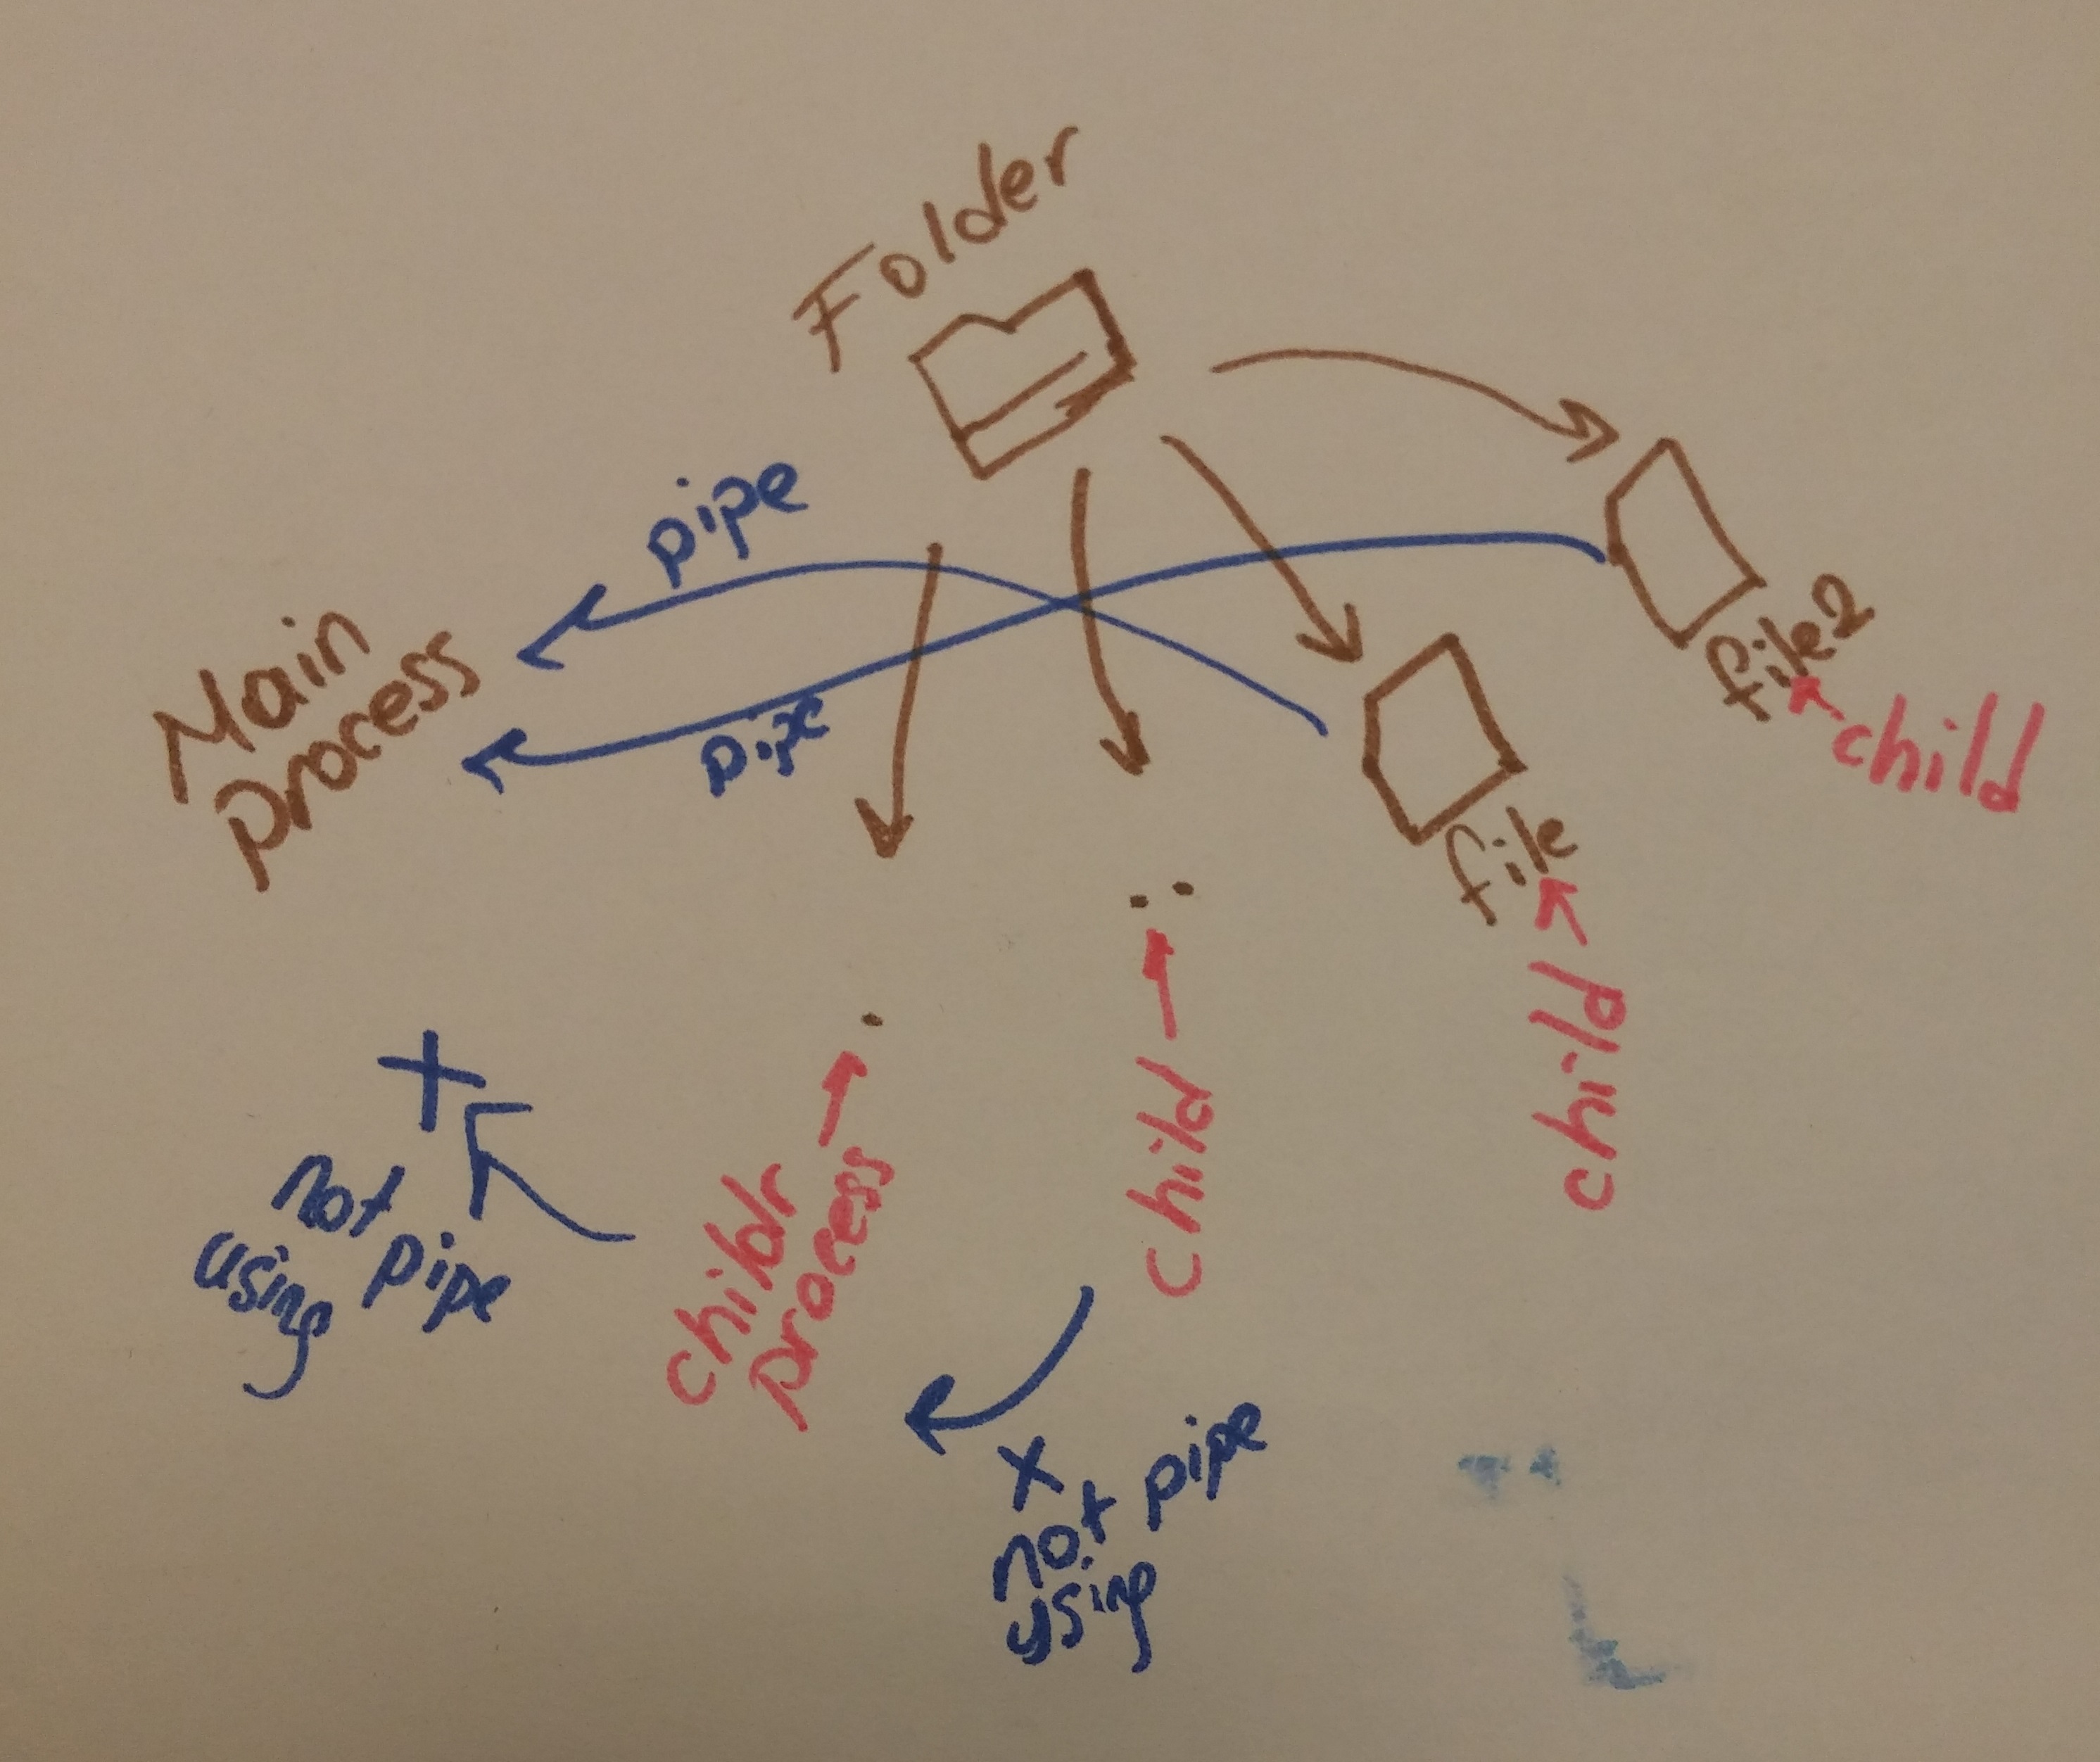 Folder
pipe
Main
process
pipe
file2
child
file
child
..
.
child
childr
process
x
not
using
pipe
x
not pipe
using